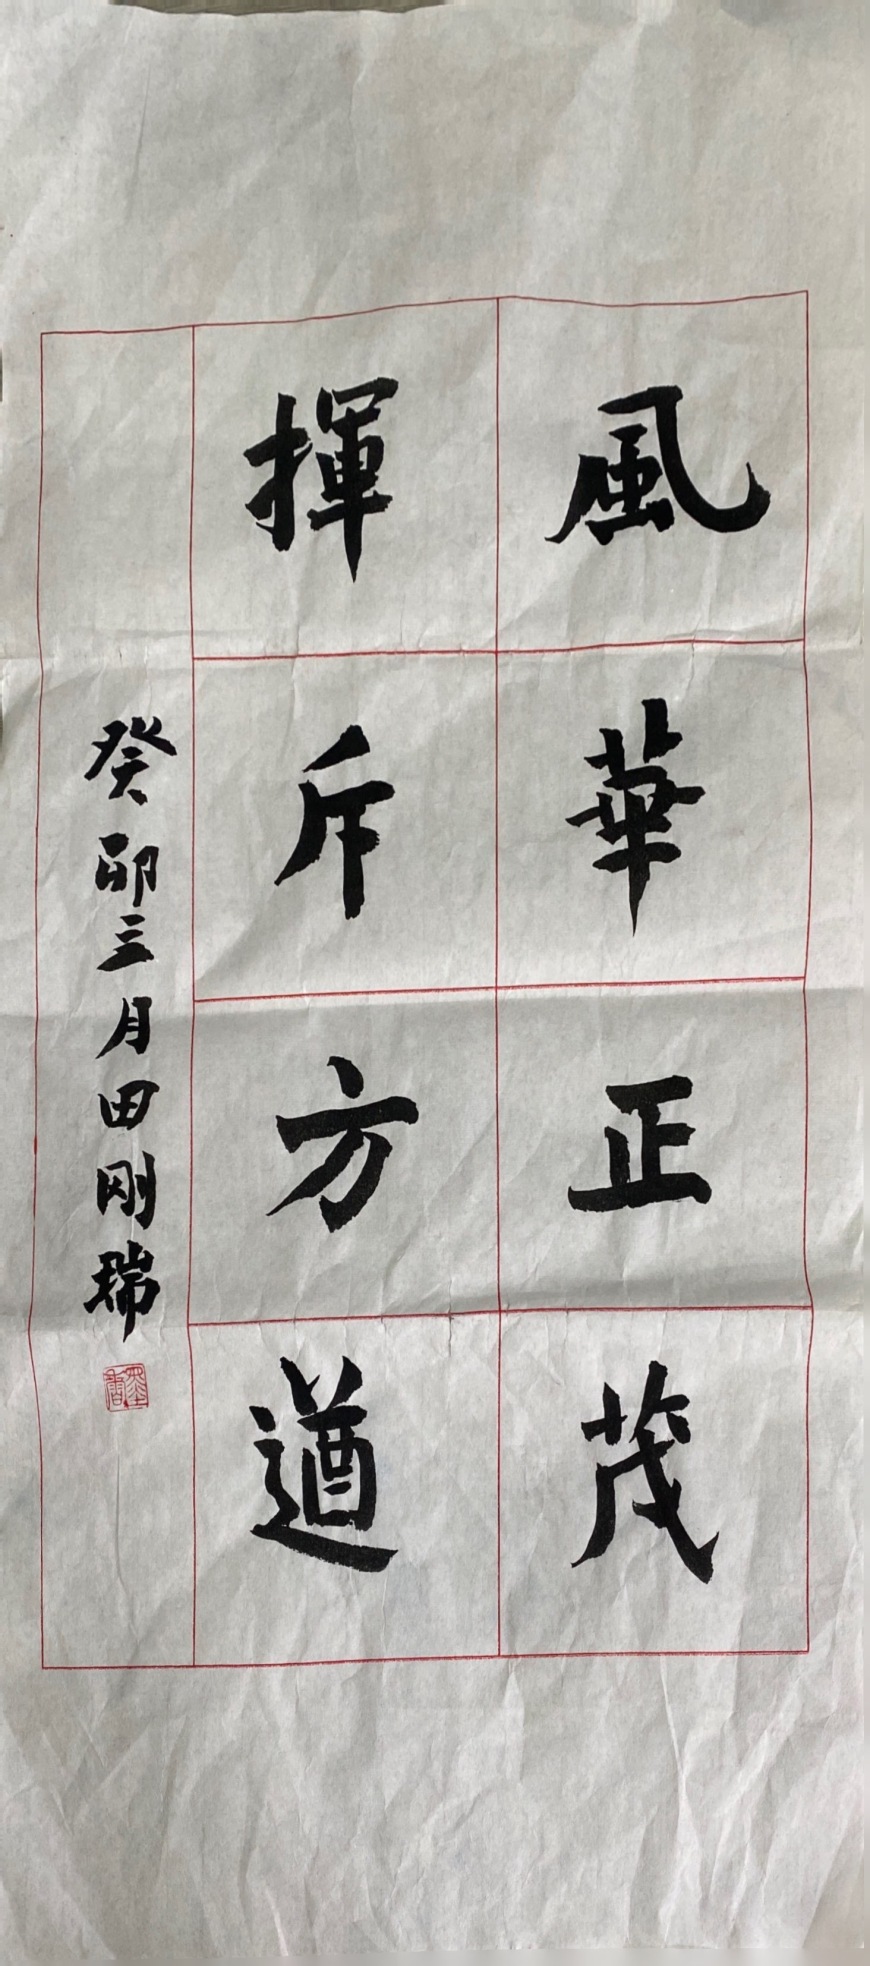 風華正茂
揮斥方遒
癸卯三月田剛瑞
墨香